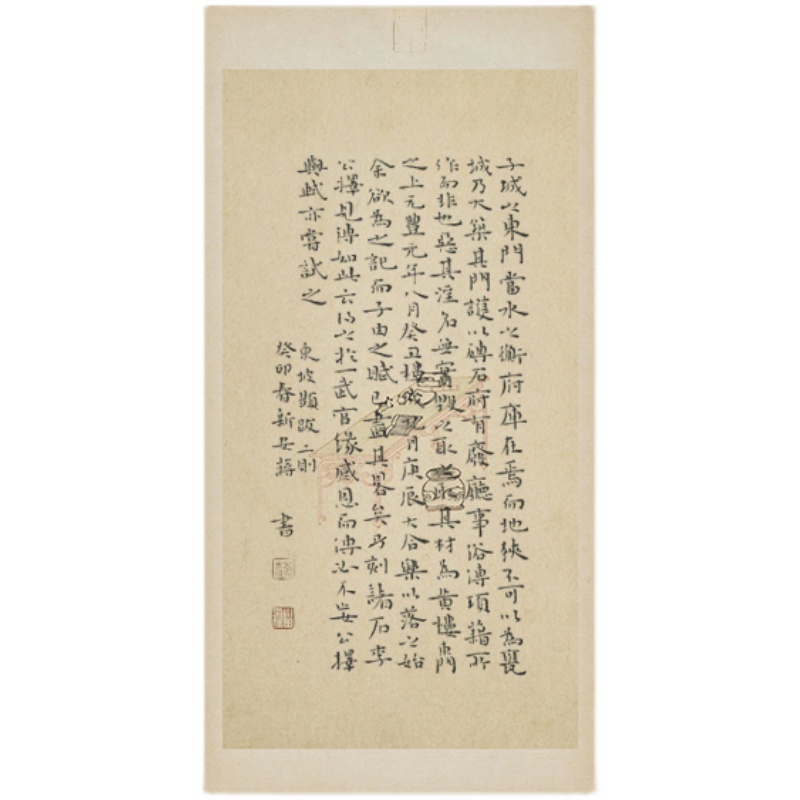 子城之東門當水之衝府庫在焉而地狹不可以為甕
城乃大築其門護以磚石府有廢廳事俗傳項籍所
作而非也惡其淫名無實毀之取其材為黄樓東門
之上元豐元年八月癸丑樓成九月庚辰大合樂以落之始
余欲為之記而子由之賦已盡其畧矣乃刻諸石李
公擇見傳如此云得之於一武官緣感恩而傳必不妄公擇
與軾亦嘗試之
東坡題跋二則
癸卯春新安蔣 書